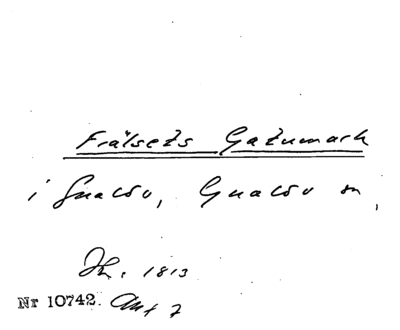 Frälsets Gatumark
i Gualöv, Gualöv sn,
Jh. 1813
Nr 10742. Akt 7